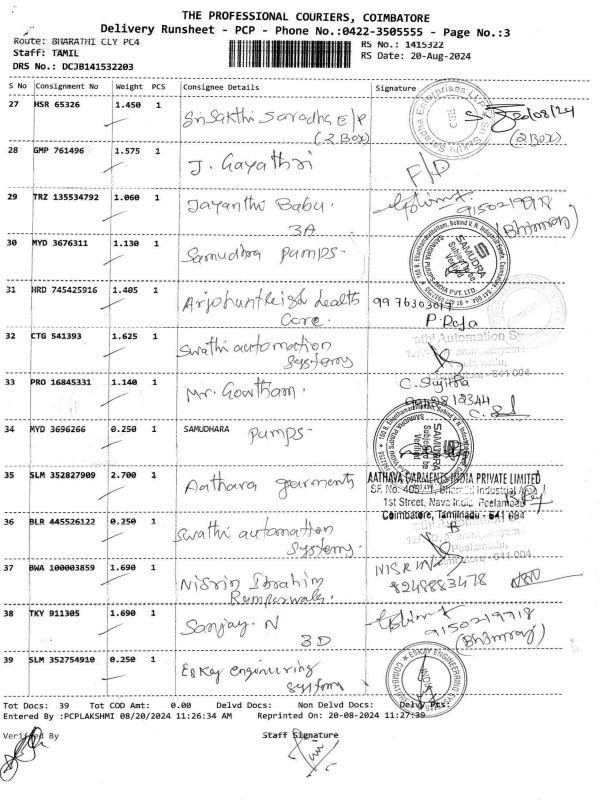 THE PROFESSIONAL COURIERS, COIMBATORE
Delivery Runsheet - PCP - Phone No.:0422-3505555 - Page No.:3
Route: BHARATHI CLY PC4
RS No.: 1415322
Staff: TAMIL
RS Date: 20-Aug-2024
DRS No.: DCJB141532203
S No Consignment No Weight PCS Consignee Details Signature
27 HSR 65326 1.450 1 Sri Sakthi Saradha E/P
(2 Box) (2 Box)
28 GMP 761496 1.575 1 J. Gayathri F/D
29 TRZ 135534792 1.060 1 Jayanthi Babu. 9150219918
3A (Bhimraj)
30 MYD 3676311 1.130 1 Samudhra Pumps-
SAMUDRA
31 HRD 745425916 1.405 1
Care. P. Raja
32 CTG 541393 1.625 1 Swathi automation
Systems
33 PRO 16845331 1.140 1 Mr. Gowtham. C. Sujitha
34 MYD 3696266 0.250 1 SAMUDHARA Pumps-
SAMUDRA
35 SLM 352827909 2.700 1 Aathava garments
AATHAVA GARMENTS INDIA PRIVATE LIMITED
1st Street, Nava India, Peelamedu
Coimbatore, Tamilnadu - 641 004
36 BLR 445526122 0.250 1 Swathi automation
Systems.
37 BWA 100003859 1.690 1 Nisrin Ibrahim NISRIN
8248883478
38 TKY 911305 1.690 1 Sanjay. N 9150219918
3D (Bhimraj)
39 SLM 352754910 0.250 1 Eskay engineering
Systems
ESKAY ENGINEERING SYSTEMS
COIMBATORE
INDIA
Tot Docs: 39 Tot COD Amt: 0.00 Delvd Docs: Non Delvd Docs: Delvy Pts:
Entered By :PCPLAKSHMI 08/20/2024 11:26:34 AM Reprinted On: 20-08-2024 11:27:39
Verified By Staff Signature